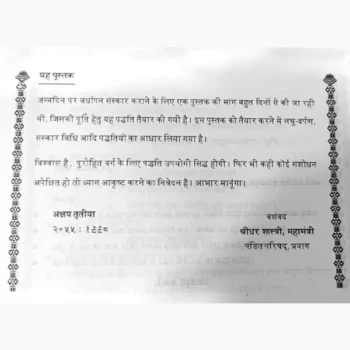 यह पुस्तक
जन्मदिन पर बर्धापन संस्कार कराने के लिए एक पुस्तक की मांग बहुत दिनों से की जा रही
थी, जिसकी पूर्ति हेतु यह पद्धति तैयार की गयी है। इस पुस्तक को तैयार करने में लघु-दर्पण,
संस्कार विधि आदि पद्धतियों का आधार लिया गया है।
विश्वास है, पुरोहित वर्ग के लिए पद्धति उपयोगी सिद्ध होगी। फिर भी कहीं कोई संशोधन
अपेक्षित हो तो ध्यान आकृष्ट करने का निवेदन है। आभार मानूंगा।
अक्षय तृतीया वशंवद
२०५५ : १९९८ श्रीधर शास्त्री, महामंत्री
पंडित परिषद्, प्रयाग